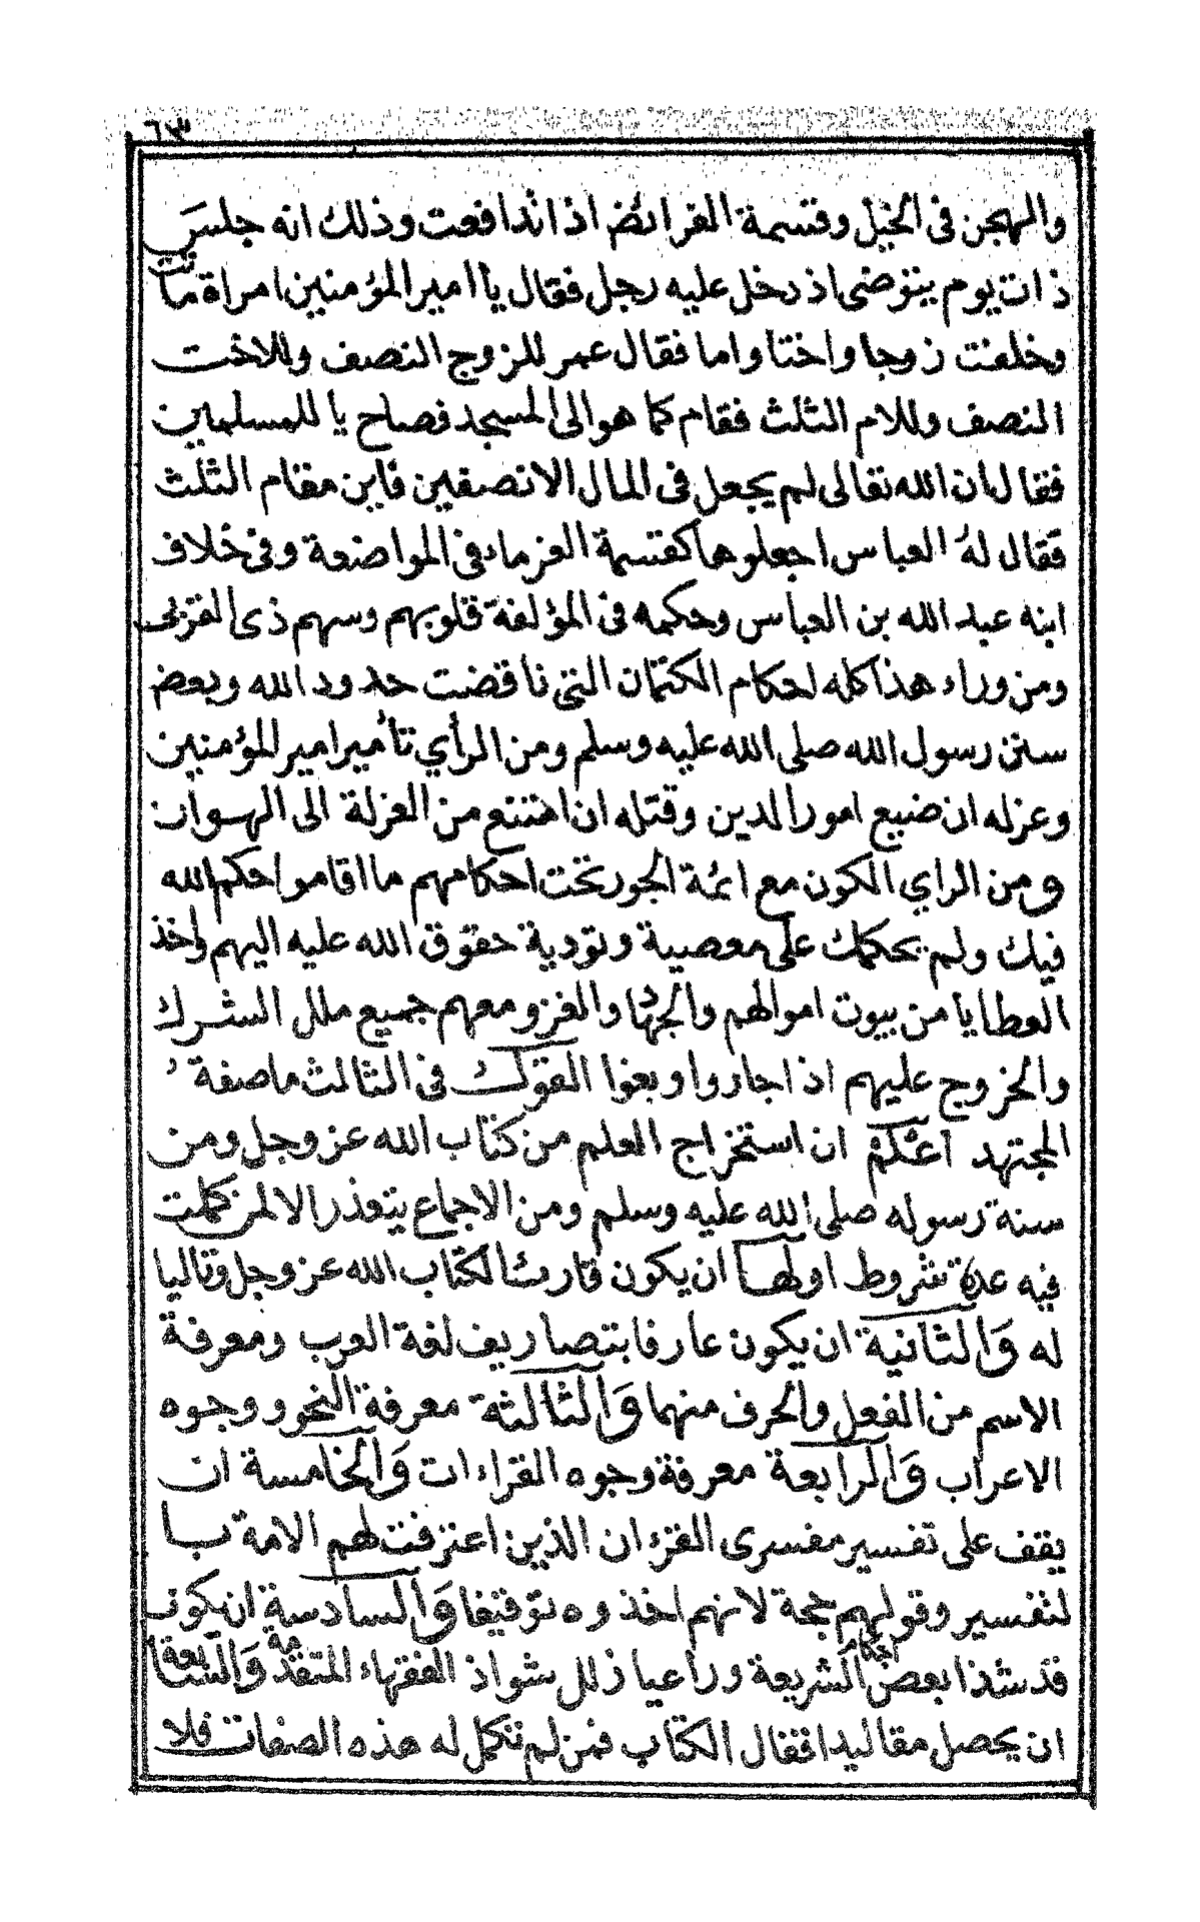 ٦٣
والهجن في الخيل وقسمة الفرائض اذ اندافعت وذلك انه جلس
ذات يوم يتوضى اذ دخل عليه رجل فقال يا امير المؤمنين امراة ماتت
وخلفت زوجا واختا واما فقال عمر للزوج النصف وللاخت
النصف وللام الثلث فقام كما هو الى المسجد فصاح يا للمسلمين
فقال ان الله تعالى لم يجعل في المال الا نصفين فاين مقام الثلث
فقال له العباس اجعلوها كقسمة الغرماء في المواضعة وفي خلاف
ابنه عبد الله بن العباس وحكمه في المؤلفة قلوبهم وسهم ذى القربى
ومن وراء هذا كله احكام الكتمان التي ناقضت حدود الله وبعض
سنن رسول الله صلى الله عليه وسلم ومن الرأي تأمير امير المؤمنين
وعزله ان ضيع امور الدين وقتله ان امتنع من العزلة الى الهوان
ومن الراي الكون مع ائمة الجور تحت احكامهم ما اقاموا حكم الله
فيك ولم يحكمك على معصية وتودية حقوق الله عليه اليهم واخذ
العطايا من بيوت اموالهم والجهاد والغزو معهم جميع ملل الشرك
والخروج عليهم اذا جاروا وبغوا القول في الثالث ما صفة
المجتهد اعلم ان استخراج العلم من كتاب الله عز وجل ومن
سنة رسوله صلى الله عليه وسلم ومن الاجماع يتعذر الا لمن كملت
فيه عدة شروط اولها ان يكون قارئا لكتاب الله عز وجل وتاليا
له والثانية ان يكون عارفا بتصاريف لغة العرب ومعرفة
الاسم من الفعل والحرف منهما والثالثة معرفة النحو ووجوه
الاعراب والرابعة معرفة وجوه القراءات والخامسة ان
يقف على تفسير مفسرى القرءان الذين اعترفت لهم الامة با
لتفسير وقولهم حجة لانهم اخذوه توقيفا والسادسة ان يكون
قد شذا بعض احكام الشريعة وراعيا زلل شواذ الفقهاء المتقدمة والسابعة
ان يحصل مقاليد انفال الكتاب فمن لم تكمل له هذه الصفات فلا